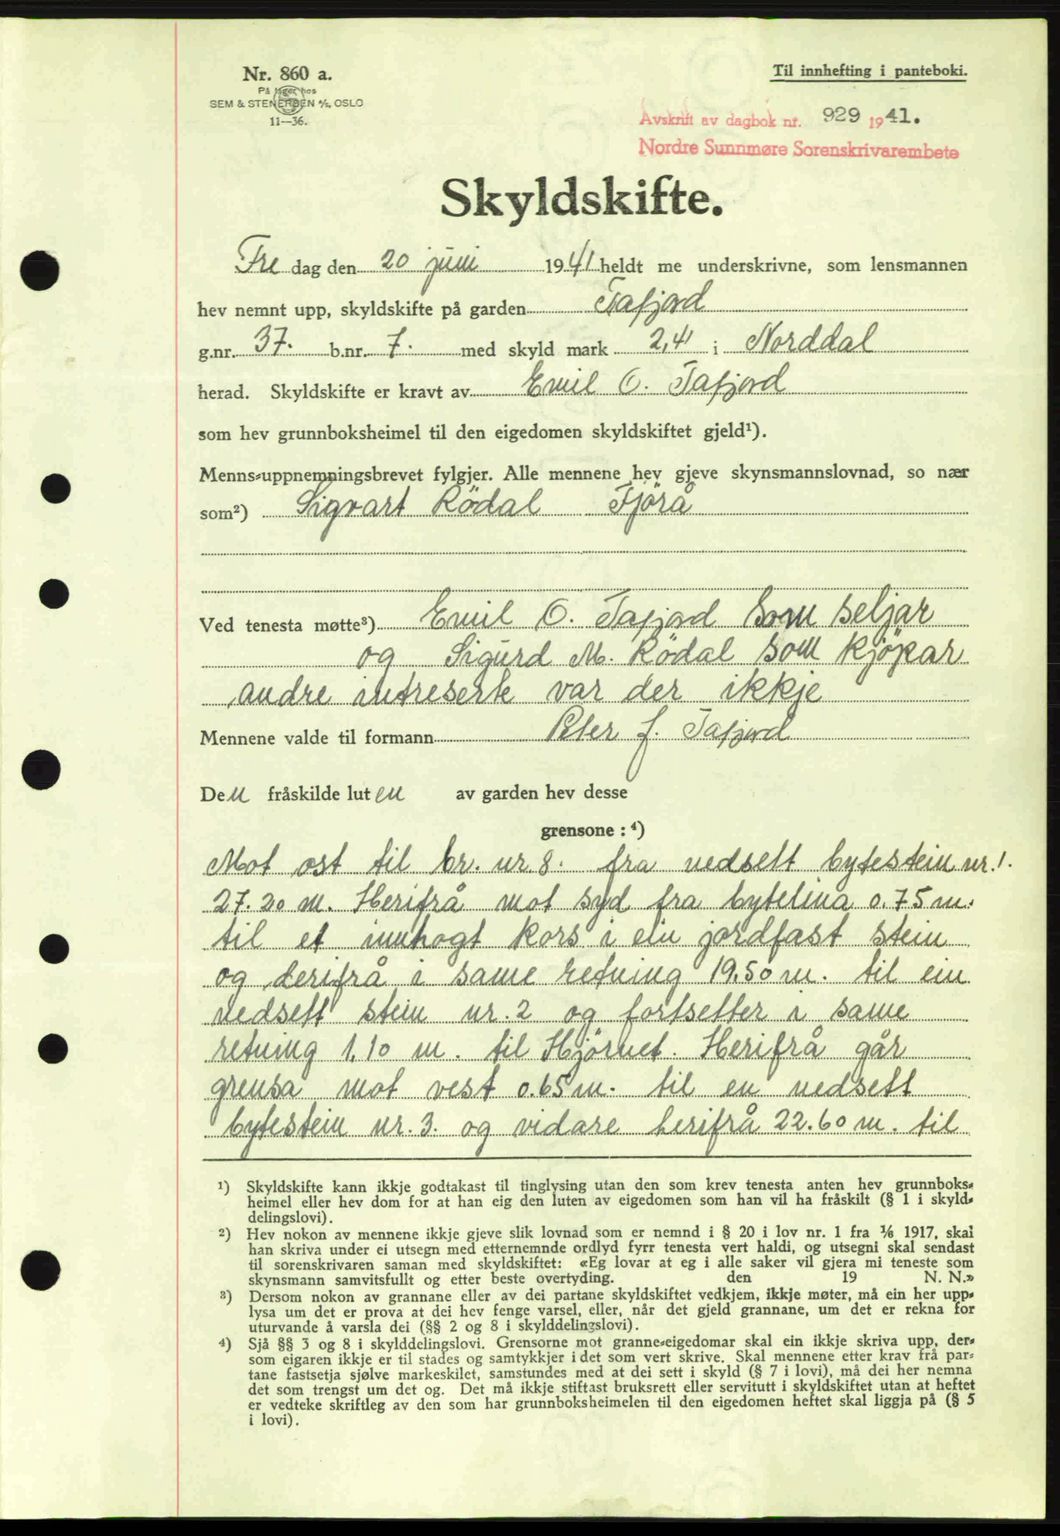 Nr. 860 a.
På lager hos
SEM & STENERSEN A/S, OSLO
11—36.
Til innhefting i panteboki.
Avskrift av dagbok nr. 929 1941.
Nordre Sunnmøre Sorenskrivarembete
Skyldskifte.
Fre dag den 20 juni 1941 heldt me underskrivne, som lensmannen
hev nemnt upp, skyldskifte på garden Tafjord
g.nr. 37. b.nr. 7. med skyld mark 2,41 i Norddal
herad. Skyldskifte er kravt av Emil O. Tafjord
som hev grunnboksheimel til den eigedomen skyldskiftet gjeld¹).
Menns-uppnemningsbrevet fylgjer. Alle mennene hev gjeve skynsmannslovnad, so nær
som²) Sigvart Rödal Fjörå
Ved tenesta møtte³) Emil O. Tafjord som seljar
og Sigurd M. Rödal som kjöpar
andre intreserte var der ikkje
Mennene valde til formann Peter J. Tafjord
Den fråskilde luten av garden hev desse
grensone : ⁴)
Mot ost til br. nr 8. fra nedsett bytestein nr. 1.
27.20 m. Herifrå mot syd fra bytelina 0.75 m.
til et innhogt kors i ein jordfast stein
og derifrå i same retning 19.50 m. til ein
nedsett stein nr. 2 og fortsetter i same
retning 1.10 m. til Hjörnet. Herifrå går
grensa mot vest 0.65 m. til en nedsett
bytestein nr. 3. og vidare herifrå 22.60 m. til
¹) Skyldskifte kann ikkje godtakast til tinglysing utan den som krev tenesta anten hev grunnboks-
heimel eller hev dom for at han eig den luten av eigedomen som han vil ha fråskilt (§ 1 i skyld-
delingslovi).
²) Hev nokon av mennene ikkje gjeve slik lovnad som er nemnd i § 20 i lov nr. 1 fra ⅙ 1917, skal
han skriva under ei utsegn med etternemnde ordlyd fyrr tenesta vert haldi, og utsegni skal sendast
til sorenskrivaren saman med skyldskiftet: «Eg lovar at eg i alle saker vil gjera mi teneste som
skynsmann samvitsfullt og etter beste overtyding. den 19 N. N.»
³) Dersom nokon av grannane eller av dei partane skyldskiftet vedkjem, ikkje møter, må ein her upp-
lysa um det er prova at dei hev fenge varsel, eller, når det gjeld grannane, um det er rekna for
uturvande å varsla dei (§§ 2 og 8 i skylddelingslovi).
⁴) Sjå §§ 3 og 8 i skylddelingslovi. Grensorne mot granne-eigedomar skal ein ikkje skriva upp, der-
som eigaren ikkje er til stades og samtykkjer i det som vert skrive. Skal mennene etter krav frå par-
tane fastsetja sjølve markeskilet, samstundes med at dei sett i skyld (§ 7 i lovi), må dei her nemna
det som trengst um det og. Det må ikkje stiftast bruksrett eller servitutt i skyldskiftet utan at heftet
er vedteke skriftleg av den som har grunnboksheimelen til den eigedomen heftet skal liggja på (§ 5
i lovi).